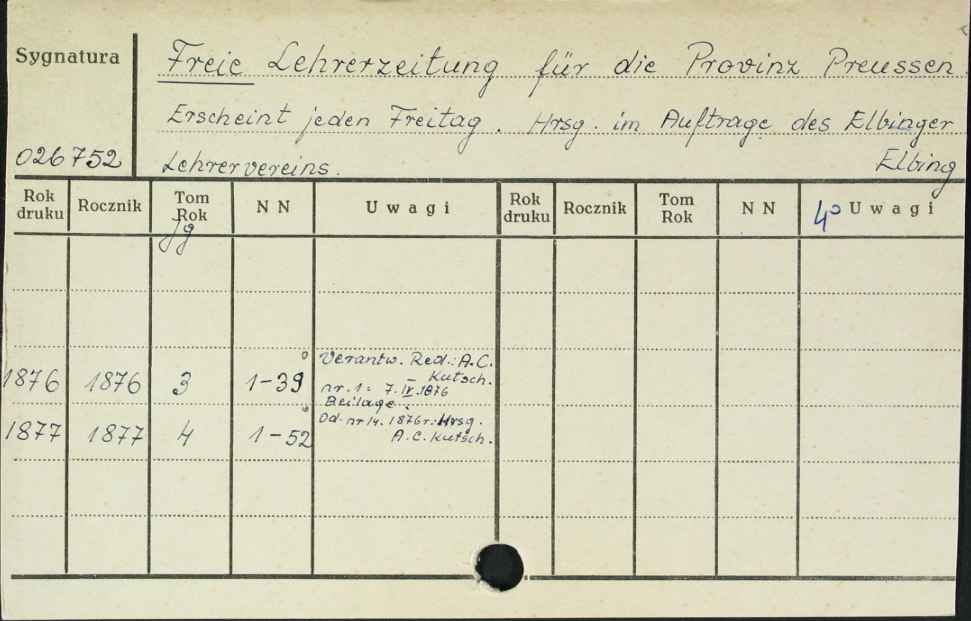 Sygnatura
Freie Lehrerzeitung für die Provinz Preussen
Erscheint jeden Freitag. Hrsg. im Auftrage des Elbinger
026752 Lehrervereins. Elbing
Rok druku Rocznik Tom Rok N N Uwagi Rok druku Rocznik Tom Rok N N 4° Uwagi
Jg
Verantw. Red.: A.C.
Kutsch.
1876 1876 3 1-39 nr. 1 = 7.IV.1876
Beilage:
Od nr 14. 1876r.: Hrsg.
1877 1877 4 1-52 A.C. Kutsch.